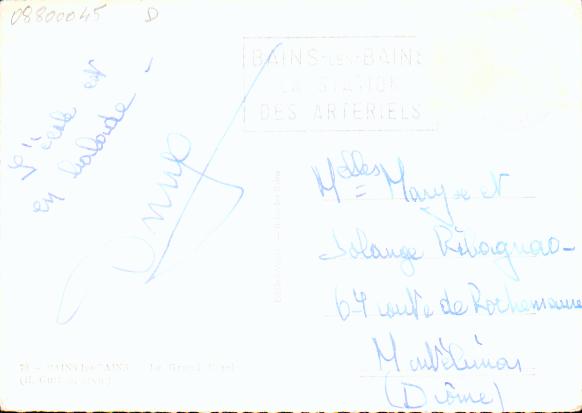 08800045 D
BAINS-LES-BAINS
LA STATION
DES ARTERIELS
L'école est
en balade -
Melles Maryse et
Solange
67 route de Rochemaure
Montélimar
(Drôme)
BAINS-les-BAINS Le Grand Hôtel